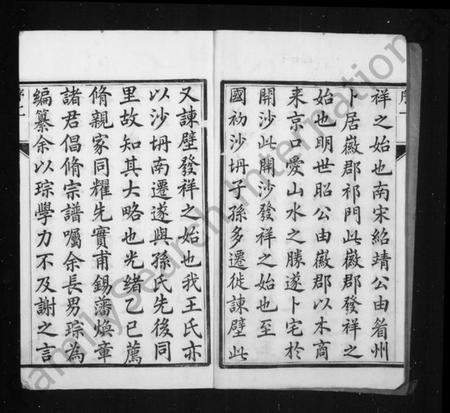 祥之始也南宋紹靖公由睂州
卜居徽郡祁門此徽郡發祥之
始也明世昭公由徽郡以木商
來京口愛山水之勝遂卜宅於
開沙此開沙發祥之始也至
國初沙坍子孫多遷徙諫壁此
又諫壁發祥之始也我王氏亦
以沙坍南遷遂與孫氏先後同
里故知其大略也光緒乙巳薦
脩親家同耀先實甫錫藩煥章
諸君倡脩宗譜囑余長男琮為
編纂余以琮學力不及謝之言
FamilySearch International